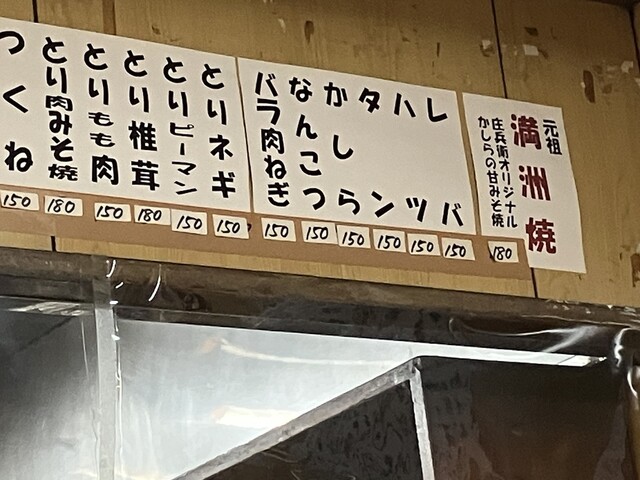 元祖
満洲焼
庄兵衛オリジナル
かしらの甘みそ焼
180
レバ
ハツ
タン
かしら
なんこつ
バラ肉ねぎ
150
150
150
150
150
150
とりネギ
とりピーマン
とり椎茸
とりもも肉
とり肉みそ焼
つくね
150
150
180
150
180
150